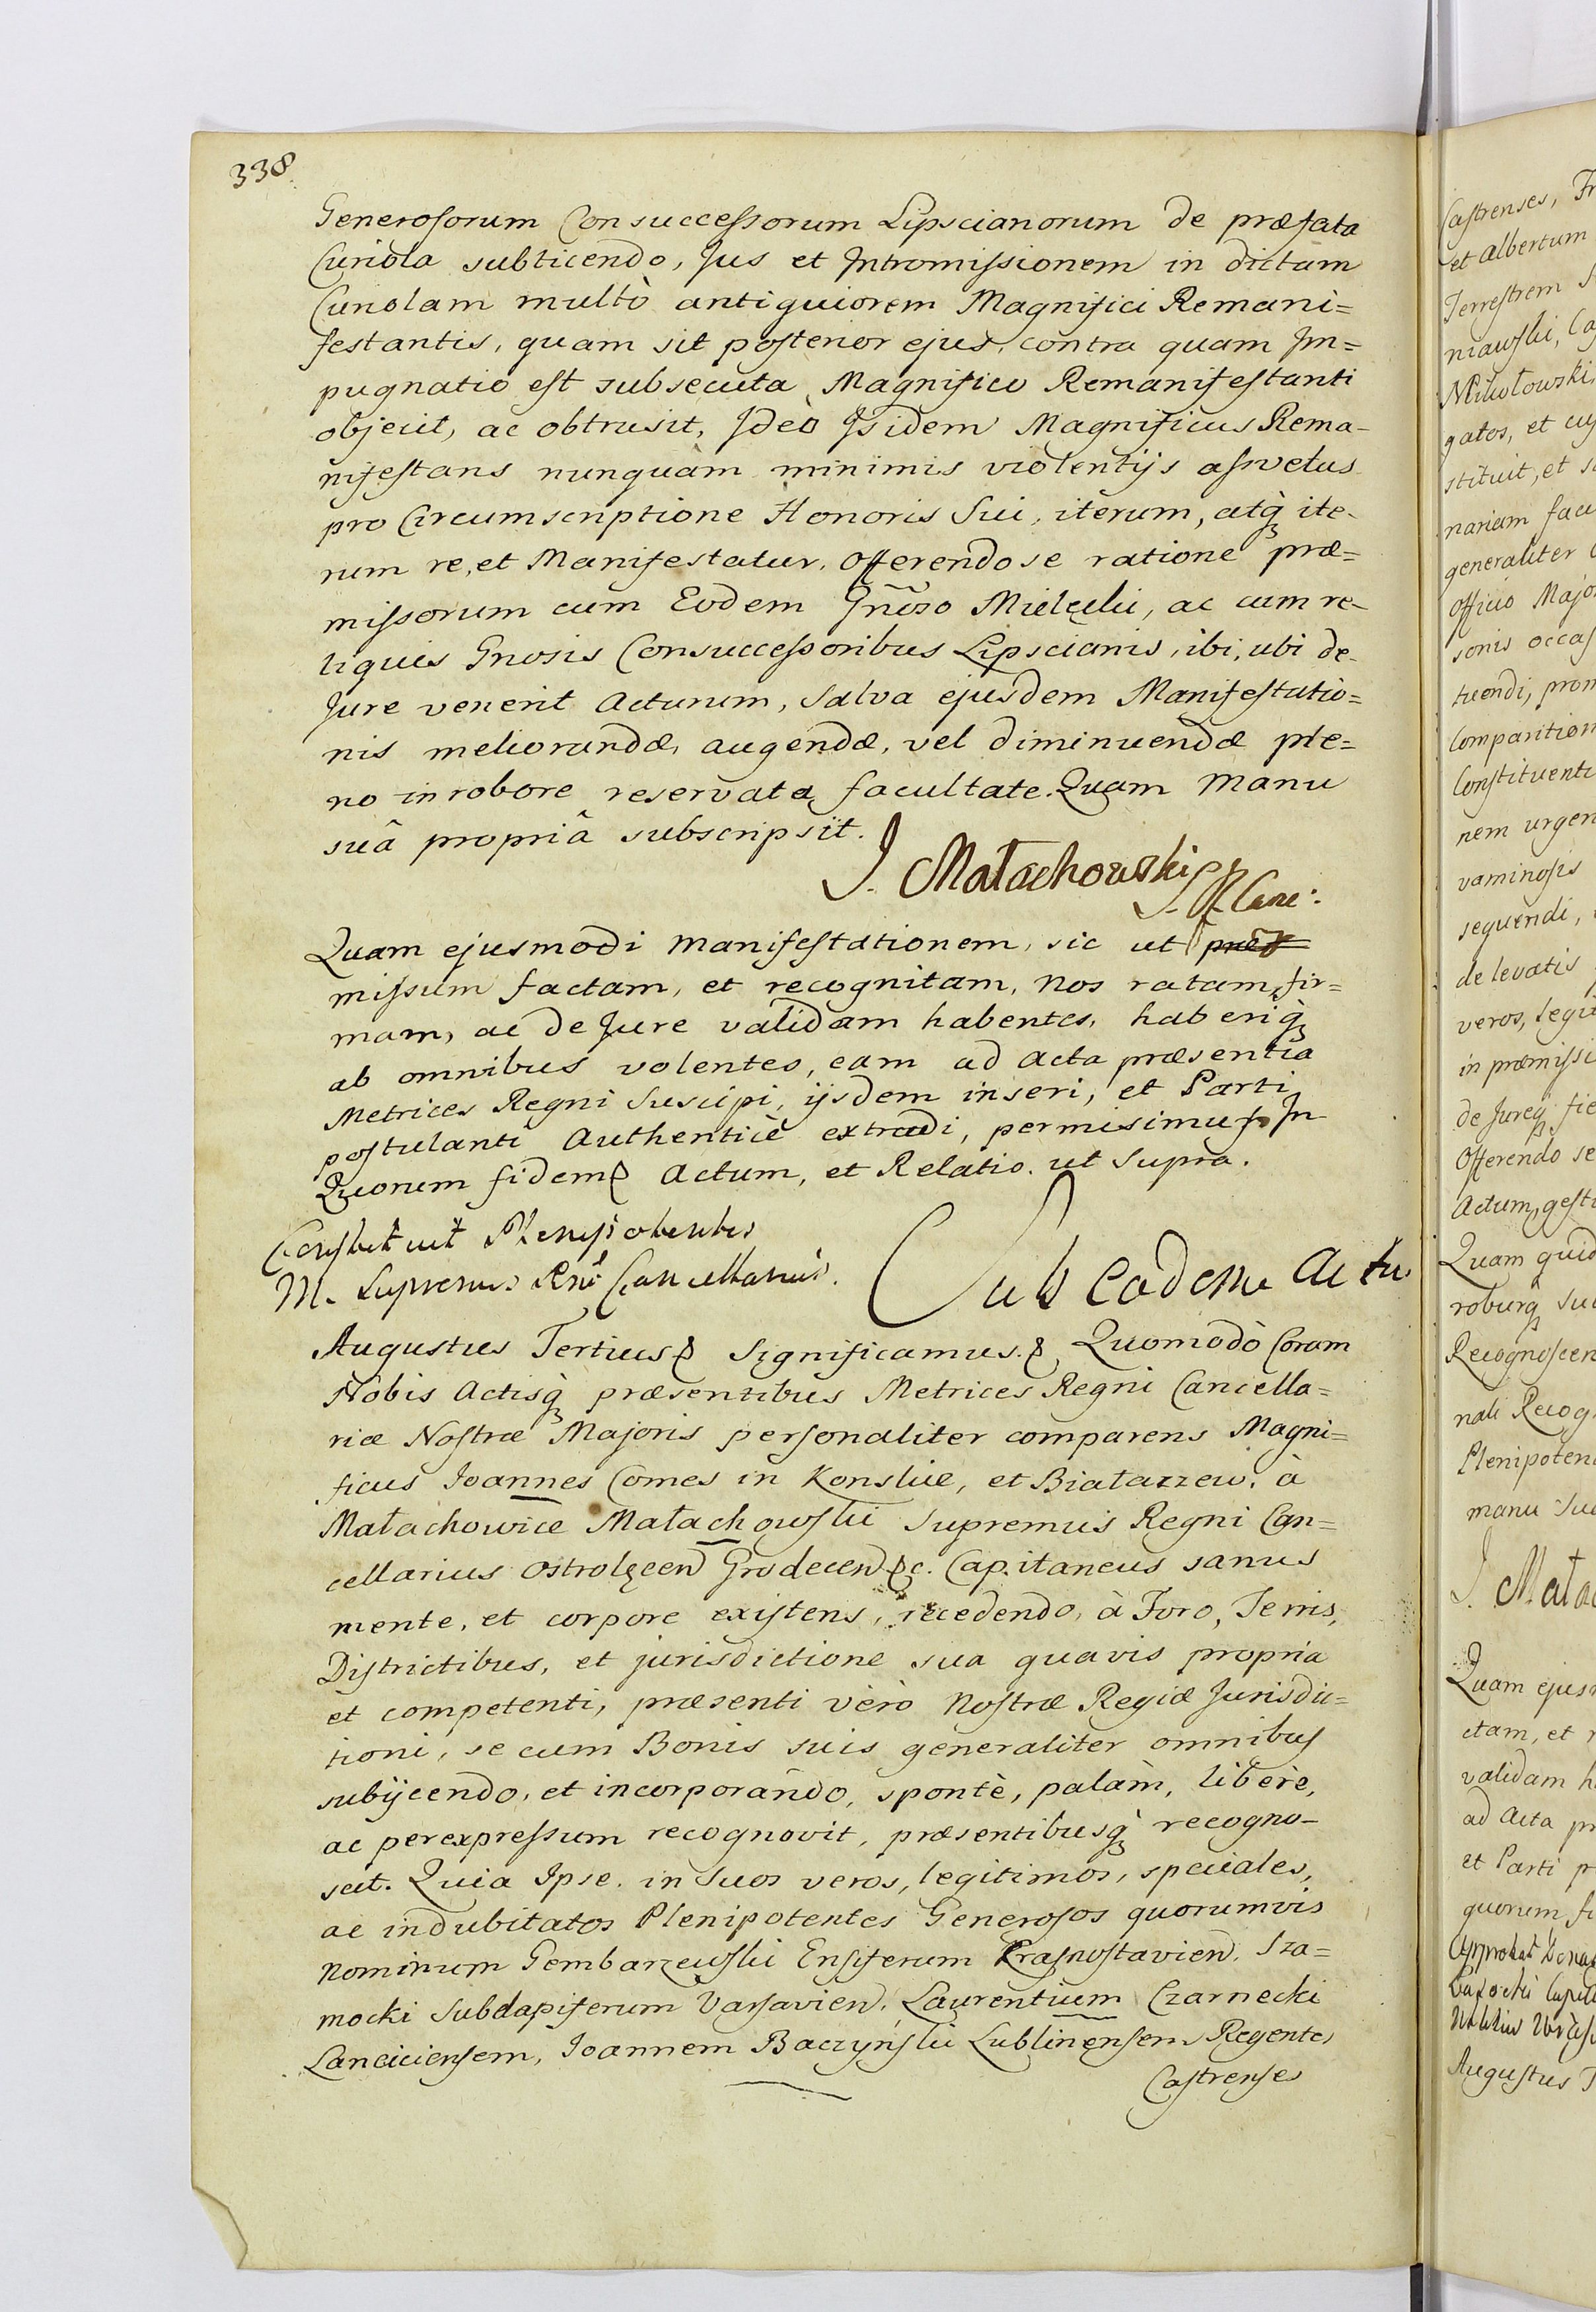 338
Generosorum Consuccessorum Lipscianorum de præfata
Curiola subticendo, Jus et Intromissionem in dictam
Curiolam multò antiquiorem Magnifici Remani=
festantis, quam sit posterior ejus, contra quam Im=
pugnatio est subsecuta Magnifico Remanifestanti
objecit, ac obtrusit, Ideò Isidem Magnificus Rema-
nifestans nunquàm minimis violentijs assvetus
pro Circumscriptione Honoris Sui, iterum, atq̀ ite-
rum re, et Manifestatur. Offerendo se ratione præ=
missorum cum Eodem Gñoso Mielęcki, ac cum re-
liquis Gnosis Consuccessoribus Lipscianis, ibi, ubi de-
Jure venerit Acturum, Salva ejusdem Manifestatio=
nis meliorandæ, augendæ, vel diminuendæ ple=
no in robore reservata facultate. Quam Manu
suâ propriâ subscripsit.
J. Małachowski
Quam ejusmodi Manifestationem, sic ut
missum factam, et recognitam, Nos ratam, fir=
mam, ac de Jure validam habentes, haberiq̀
ab omnibus volentes, eam ad Acta præsentia
Metrices Regni Suscipi, ijsdem inseri, et Parti
postulanti Authenticè extradi, permisimus. In
Quorum fidem& Actum, et Relatio. ut Supra.
Constituit Plenipotentes
M. Supremus Rni Cancellarius.
Sub eadem Actu
Augustus Tertius& Significamus.& Quomodò Coram
Nobis Actisq̀ præsentibus Metrices Regni Cancella=
riæ Nostræ Majoris personaliter comparens Magni=
ficus Joannes Comes in Konskie, et Białaczew, à
Małachowice Małachowski Supremus Regni Can=
cellarius Ostrolęcen Grodecen &c. Capitaneus sanus
mente, et corpore existens, recedendo, à Foro, Terris,
Districtibus, et jurisdictione sua quavis propria
et competenti, præsenti vèrò Nostræ Regiæ Jurisdic=
tioni, se cum Bonis suis generaliter omnibus
subijcendo, et incorporando, spontè, palàm, liberè,
ac per expressum recognovit, præsentibusq̀ recogno-
scit. Quia Ipse. in Suos veros, legitimos, speciales,
ac indubitatos Plenipotentes Generosos quorumvis
Nominum Gembarzewski Ensiferum Krasnostavien. Sza=
mocki Subdapiferum Varsavien, Laurentium Czarnecki
Lanciciensem, Joannem Baczyński Lublinensem Regentes
Castrenses
Castrenses, Fr
et Albertum
Terrestrem S
niawski, Ca
Mikołowski,
gatos, et cuj
stituit, et so
nariam facu
generaliter
Officio Major
sonis occas
tuendi, prom
Comparition
Constituenti
nem urgen
vaminosis
sequendi,
de levatis
veros, legit
in præmissi
de Jureq̀ fie
Offerendo se
Actum, gest
Quam quid
roburq̀ Su
Recognoscen
nali Recog
Plenipoten
manu Sua
J. Mała
Quam ejus
ctam, et r
validam h
ad Acta pr
et Parti p
quorum fi
Augustus T